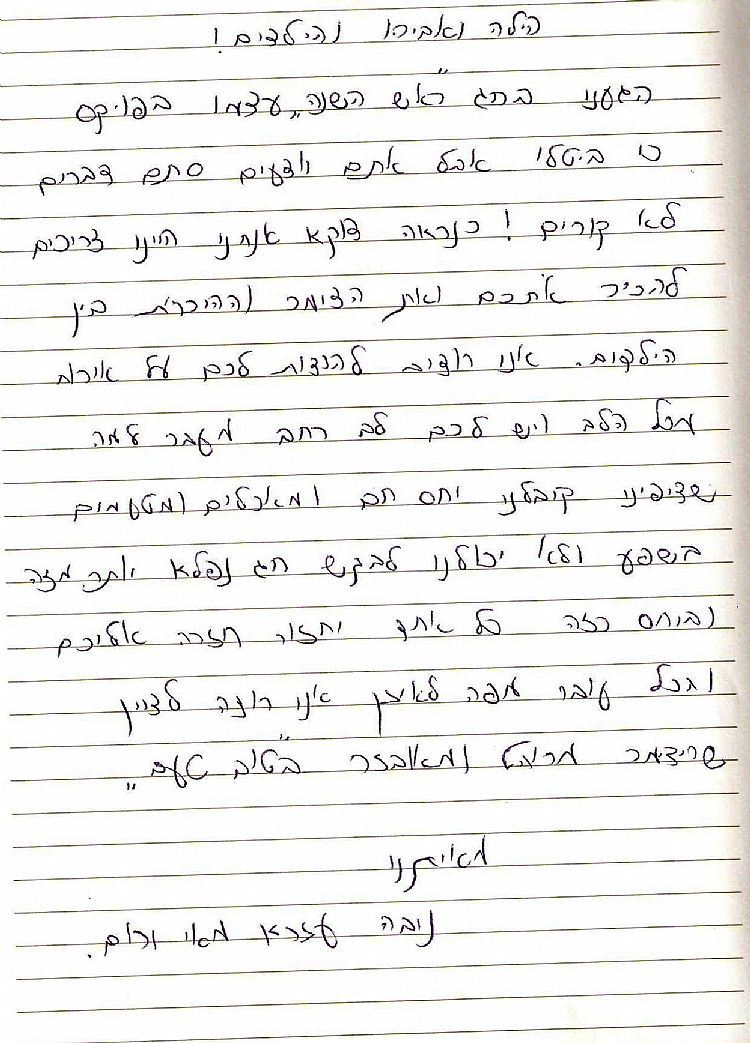 הילה ואבירן והילדים!
הגענו בחג "ראש השנה" עצמו בפויקס
כי ביטלו אבל אתם יודעים סתם דברים
לא קורים! כנראה דוקא אנחנו היינו צריכים
להכיר אתכם ואת הצימר וההיכרות בין
הילדים. אנו רוצים להודות לכם על אירוח
מכל הלב ויש לכם לב רחב מעבר למה
שציפינו קיבלנו יחס חם ומאכלים ומטעמים
בשפע ולא יכולנו לבקש חג נפלא יותר מזה
וביחס כזה כל אחד יחזור חזרה אליכם
והכל עובר מפה לאוזן אני רוצה לציין
שהצימר מרוהט ומאובזר "בטוב טעם"
מאיתנו
ניבה עזרא מאי ורום.